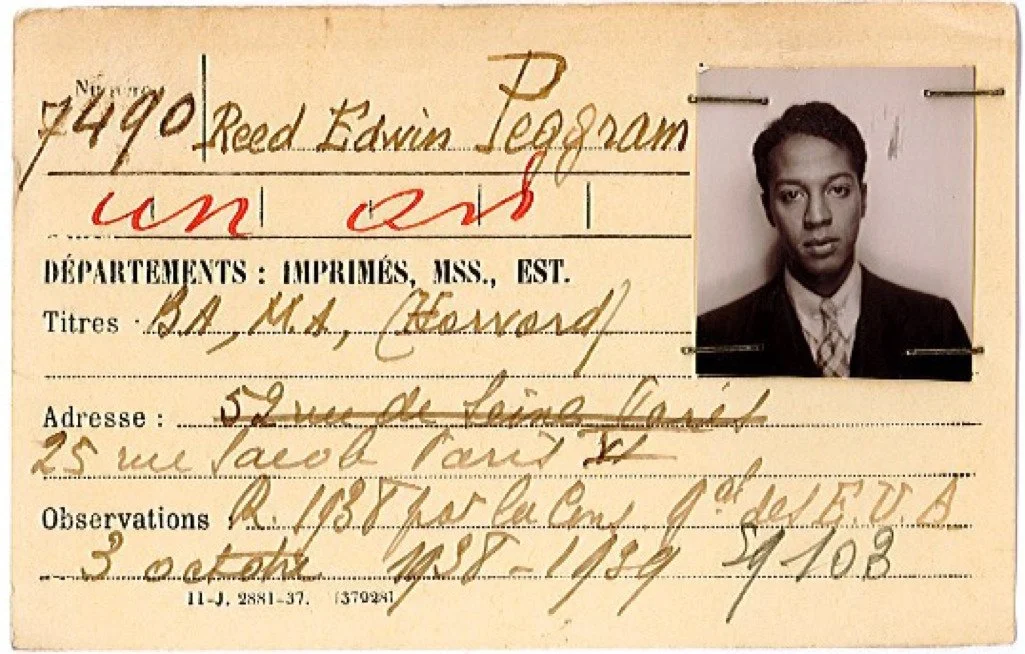 Numéro
7490 Reed Edwin Peagram
un an
DÉPARTEMENTS : IMPRIMÉS, MSS., EST.
Titres · BA, M.A, (Harvard)
Adresse : 52 rue de Seine Paris
25 rue Jacob Paris VI
Observations R. 1938 par la Cons. gal des E.U.A
3 octobre 1938 - 1939 59103
11-J. 2881-37. [37928]